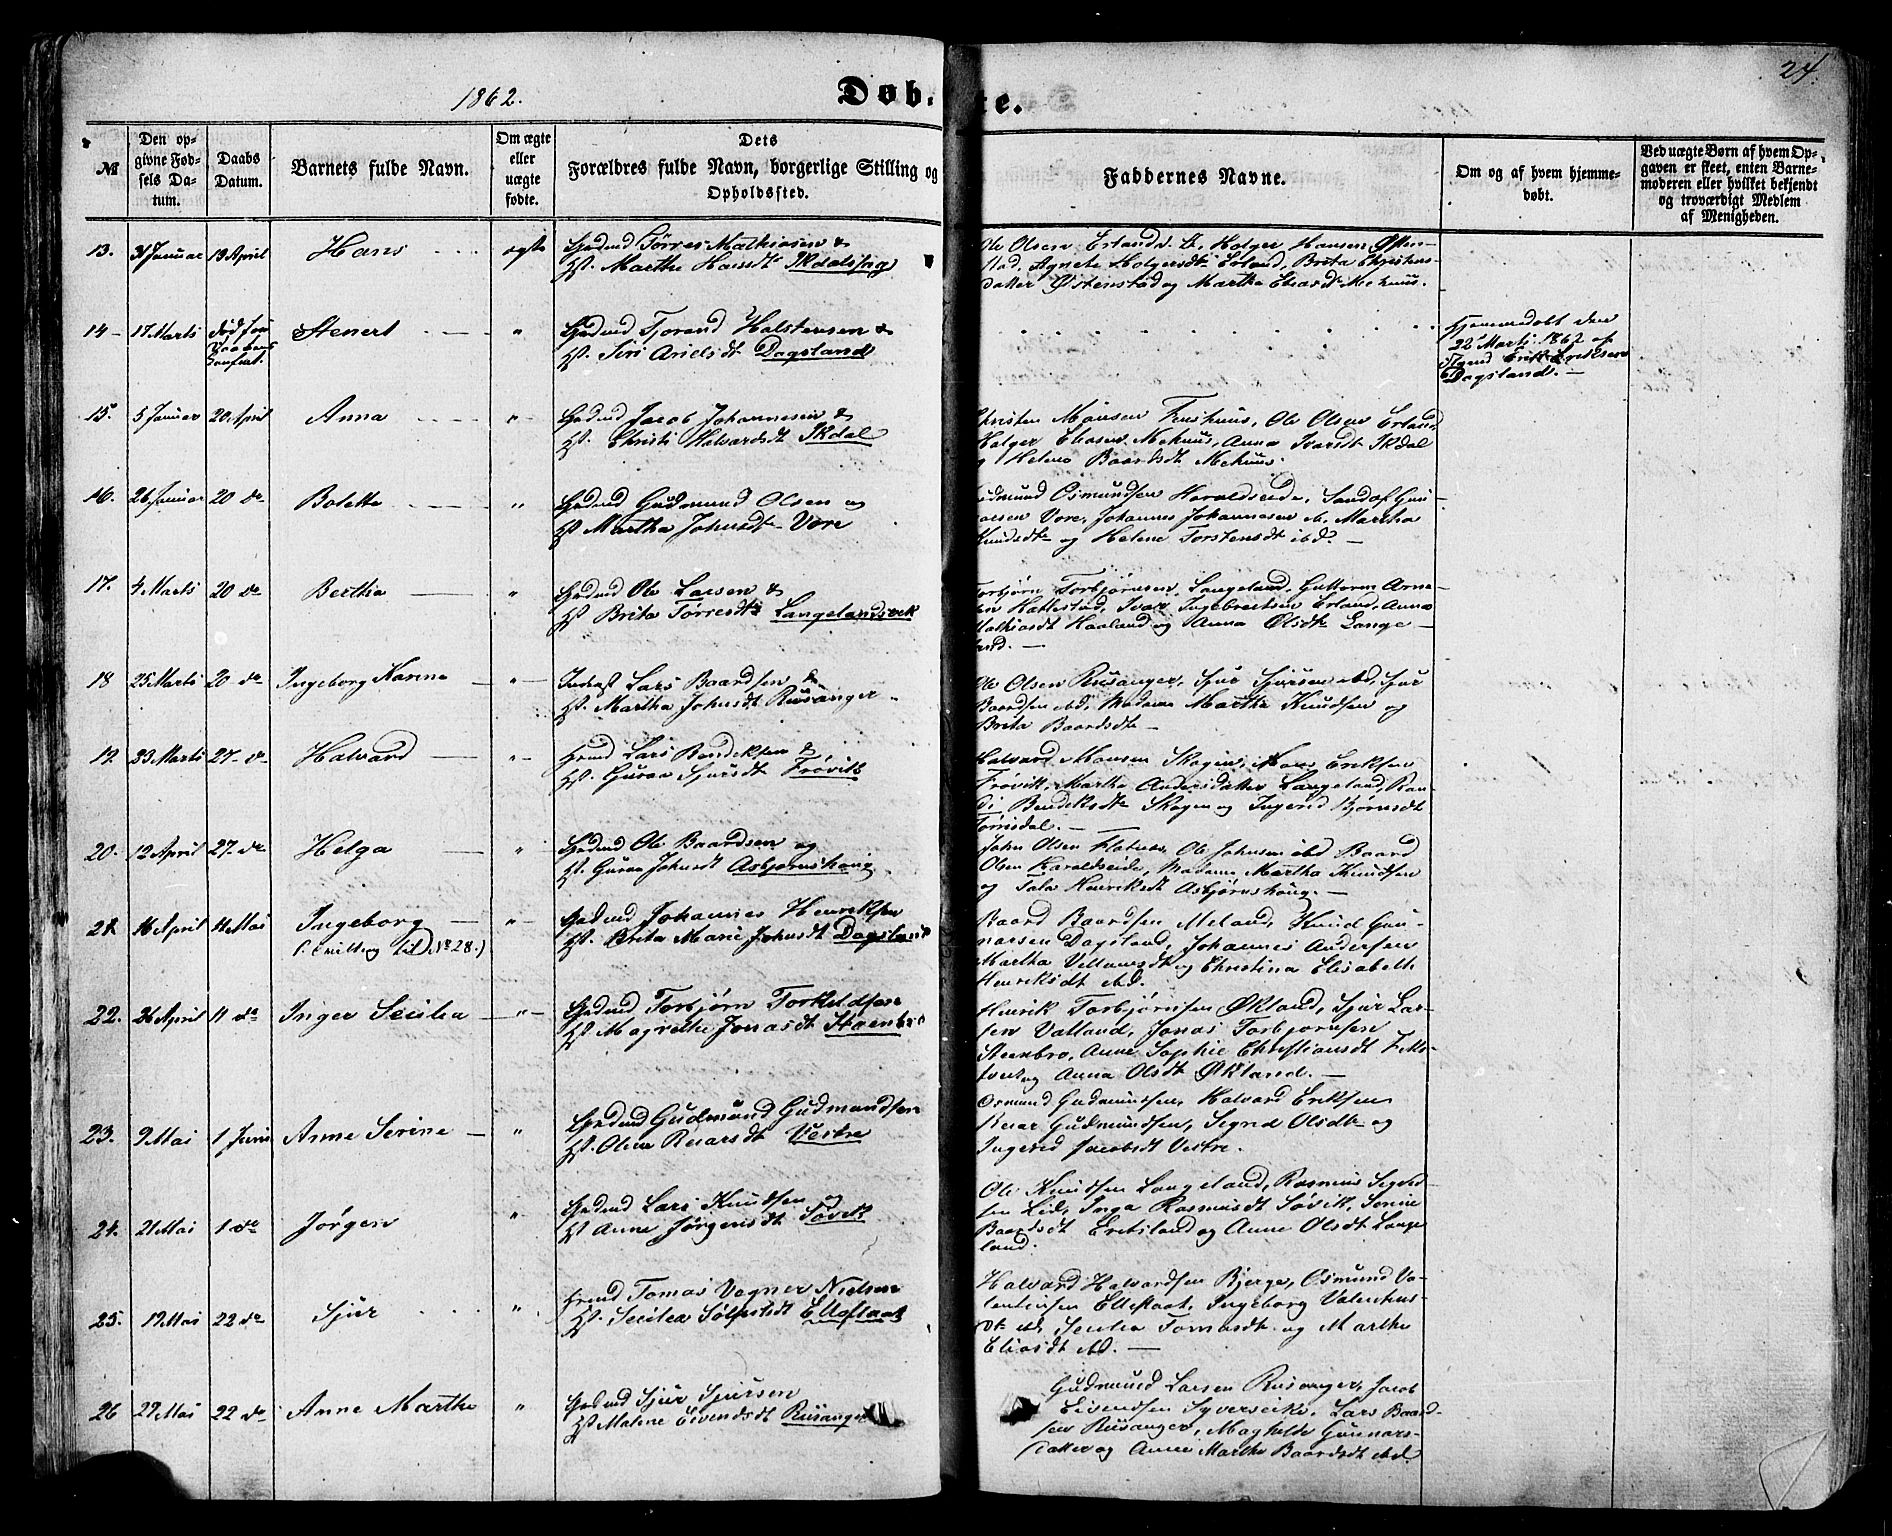 24.
1862.
Døb-
te.
№
Den op-
givne Fød-
sels Da-
tum.
Daabs
Datum.
Barnets fulde Navn.
Om ægte
eller
uægte
fødte.
Dets
Forældres fulde Navn, borgerlige Stilling og
Opholdssted.
Faddernes Navne.
Om og af hvem hjemme-
døbt.
Ved uægte Børn af hvem Op-
gaven er skeet, enten Barne-
moderen eller hvilket bekjendt
og troværdigt Medlem
af Menigheden.
13. 31 Januar 19 April Hans ægte Gaardmd Tørres Mathiasen &
H. Marthe Hansdt
Ole Olsen Erland, Holger Hansen Østen-
stad, Agnete Holgersdt Erland, Brita Christens-
datter Østenstad og Martha Eliasdt Mehuus.
14 17 Marts Stenert " Gaardmd Tjerand Halstensen &
H. Siri Arielsdt Dagsland
Hjemmedøbt den
22 Marts 1862 af
Erik Eriksen
Dagsland.
15. 5 Januar 20 April Anna " Gaardmd Jacob Johannesen &
H. Christi Halvardsdt Ikdal
Christen Monsen Fuskuus, Ole Olsen Erland,
Holger Eliasen Mehuus, Anna Ivarsdt Ikdal
og Helene Baardsdt Mehuus.
16. 26 Januar 20 do Bolette " Gaardmd Gudmund Olsen og
H. Martha Johnsdt Vore
Gudmund Osmundsen Haraldseide,
Vore, Johannes Johannesen ib. Martha
Knudsdt og Helene Torstensdt ibd.
17. 4 Marts 20 do Berthe " Gaardmd Ole Larsen &
H. Brita Tørresdt Langelandsvik
Torbjørn Torbjørnsen Langeland, Guttorm Arne-
sen Hattestad, Ivar Ingebretsen Erland, Anna
Mathiasdt Haaland og Anna Olsdt Lange-
land.
18 25 Marts 20 do Ingeborg Karine " Inderst Lars Baardsen &
H. Martha Johnsdt Rusanger
Ole Olsen Rusanger, Sjur Sjursen ibd, Sjur
Baardsen ibd, Madame Martha Knudsen og
Brita Baardsdt
19. 23 Marts 27 do Halvard " Grmd Lars Bendiksen &
H. Guroe Sjursdt Frøvik
Halvard Monsen Skogen, Eriksen
Frøvik, Martha Andersdatter Langeland, Ran-
di Bendiksdt Skogen og Ingerid Bjørnsdt
Tørrisdal.
20. 12 April 27 do Helga " Gaardmd Ole Baardsen og
H. Guroe Johnsdt Asbjørnshoug
John Olsen Flatnes, Ole Johnsen ibd Baard
Olsen Haraldseide, Madame Martha Knudsen
og Henriksdt Asbjørnshoug.
21. 16 April 11 Mai Ingeborg " Gaardmd Johannes Henriksen
(Tvilling til № 28.) H. Brita Marie Johnsdt Dagsland
Baard Baardsen Meland, Knud Gun-
narsen Dagsland, Johannes Andersen
Martha Villumsdt og Christina Elisabeth
Henriksdt ibd.
22. 26 April 11 do Inger Secilia " Gaardmd Torbjørn Torkildsen
H. Magrethe Jonasdt Steenbro
Henrik Torbjørnsen Økland, Sjur Lar-
sen Valland, Jonas Torbjørnsen
Steenbro, Anne Sophie Christiansdt
og Anna Olsdt Økland.
23. 9 Mai 1 Juni Anne Serine " Gaardmd Gudmund Gudmundsen
H. Olene Reiarsdt Vestre
Osmund Gudmundsen, Halvard Eriksen
Reiar Gudmundsen, Segrid Olsdt og
Ingerid Jacobsdt Vestre.
24. 21 Mai 1 do Jørgen " Gaardmd Lars Knudsen og
H. Anne Jørgensdt Søvik
Ole Knudsen Langeland, Rasmus Sigvard-
sen Lid, Inga Rasmusdt Søvik, Serine
Baardsdt Eretsland og Anne Olsdt Lange-
land.
25. 19 Mai 22 do Sjur " Grmd Tomas Vegner Nielsen
H. Secilea Sølfestdt Elleflaat
Halvard Halvardsen Bjerge, Osmund Va-
lentinsen Elleflaat, Ingeborg Valentins-
dt ibd, Secilia Tomasdt og Marthe
Eliasdt ibd.
26 27 Mai 22 do Anne Marthe " Gaardmd Sjur Sjursen
H. Malene Eivendsdt Rusanger
Gudmund Larsen Rusanger, Jacob
Eivendsen Syverseike, Lars Baard-
sen Rusanger, Maghilde Gunnars-
datter og Anne Marthe Baardsdt ibd.